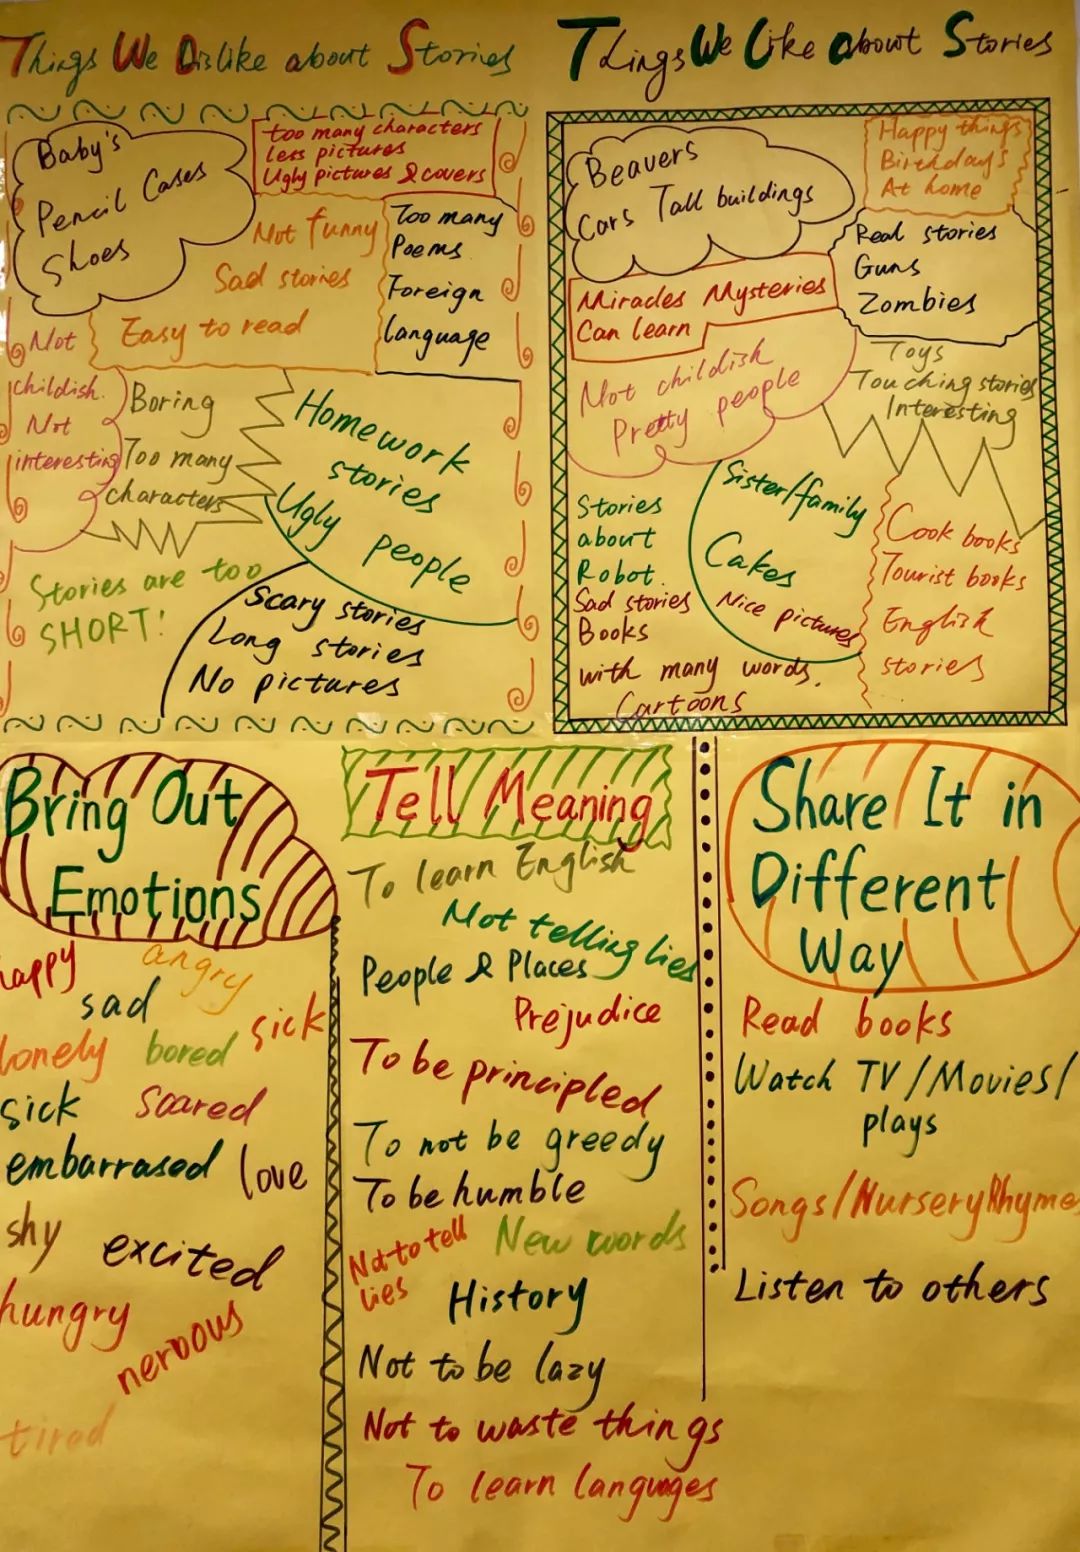 Things We Dislike about Stories
Baby's
Pencil Cases
Shoes
too many characters
Less pictures
Ugly pictures & covers
Not funny
Sad stories
Easy to read
Too many
Poems
Foreign
Language
Not
childish.
Not
interesting
Boring
Too many
characters
Homework
stories
Ugly people
Stories are too
SHORT!
Scary stories
Long stories
No pictures
Things We Like about Stories
Beavers
Cars Tall buildings
Happy things
Birthday's
At home
Real stories
Guns
Zombies
Miracles Mysteries
Can learn
Not childish
Pretty people
Toys
Touching stories
Interesting
Stories
about
Robot.
Sad stories
Books
with many words.
Cartoons
Sister/family
Cakes
Nice pictures
Cook books
Tourist books
English
stories
Bring Out
Emotions
happy
angry
sad
sick
lonely bored
sick scared
embarrased love
shy excited
hungry
nervous
tired
Tell Meaning
To learn English
Not telling lies
People & Places
Prejudice
To be principled
To not be greedy
To be humble
Not to tell
lies
New words
History
Not to be lazy
Not to waste things
To learn languages
Share It in
Different
Way
Read books
Watch TV/Movies/
plays
Songs/Nursery Rhymes
Listen to others